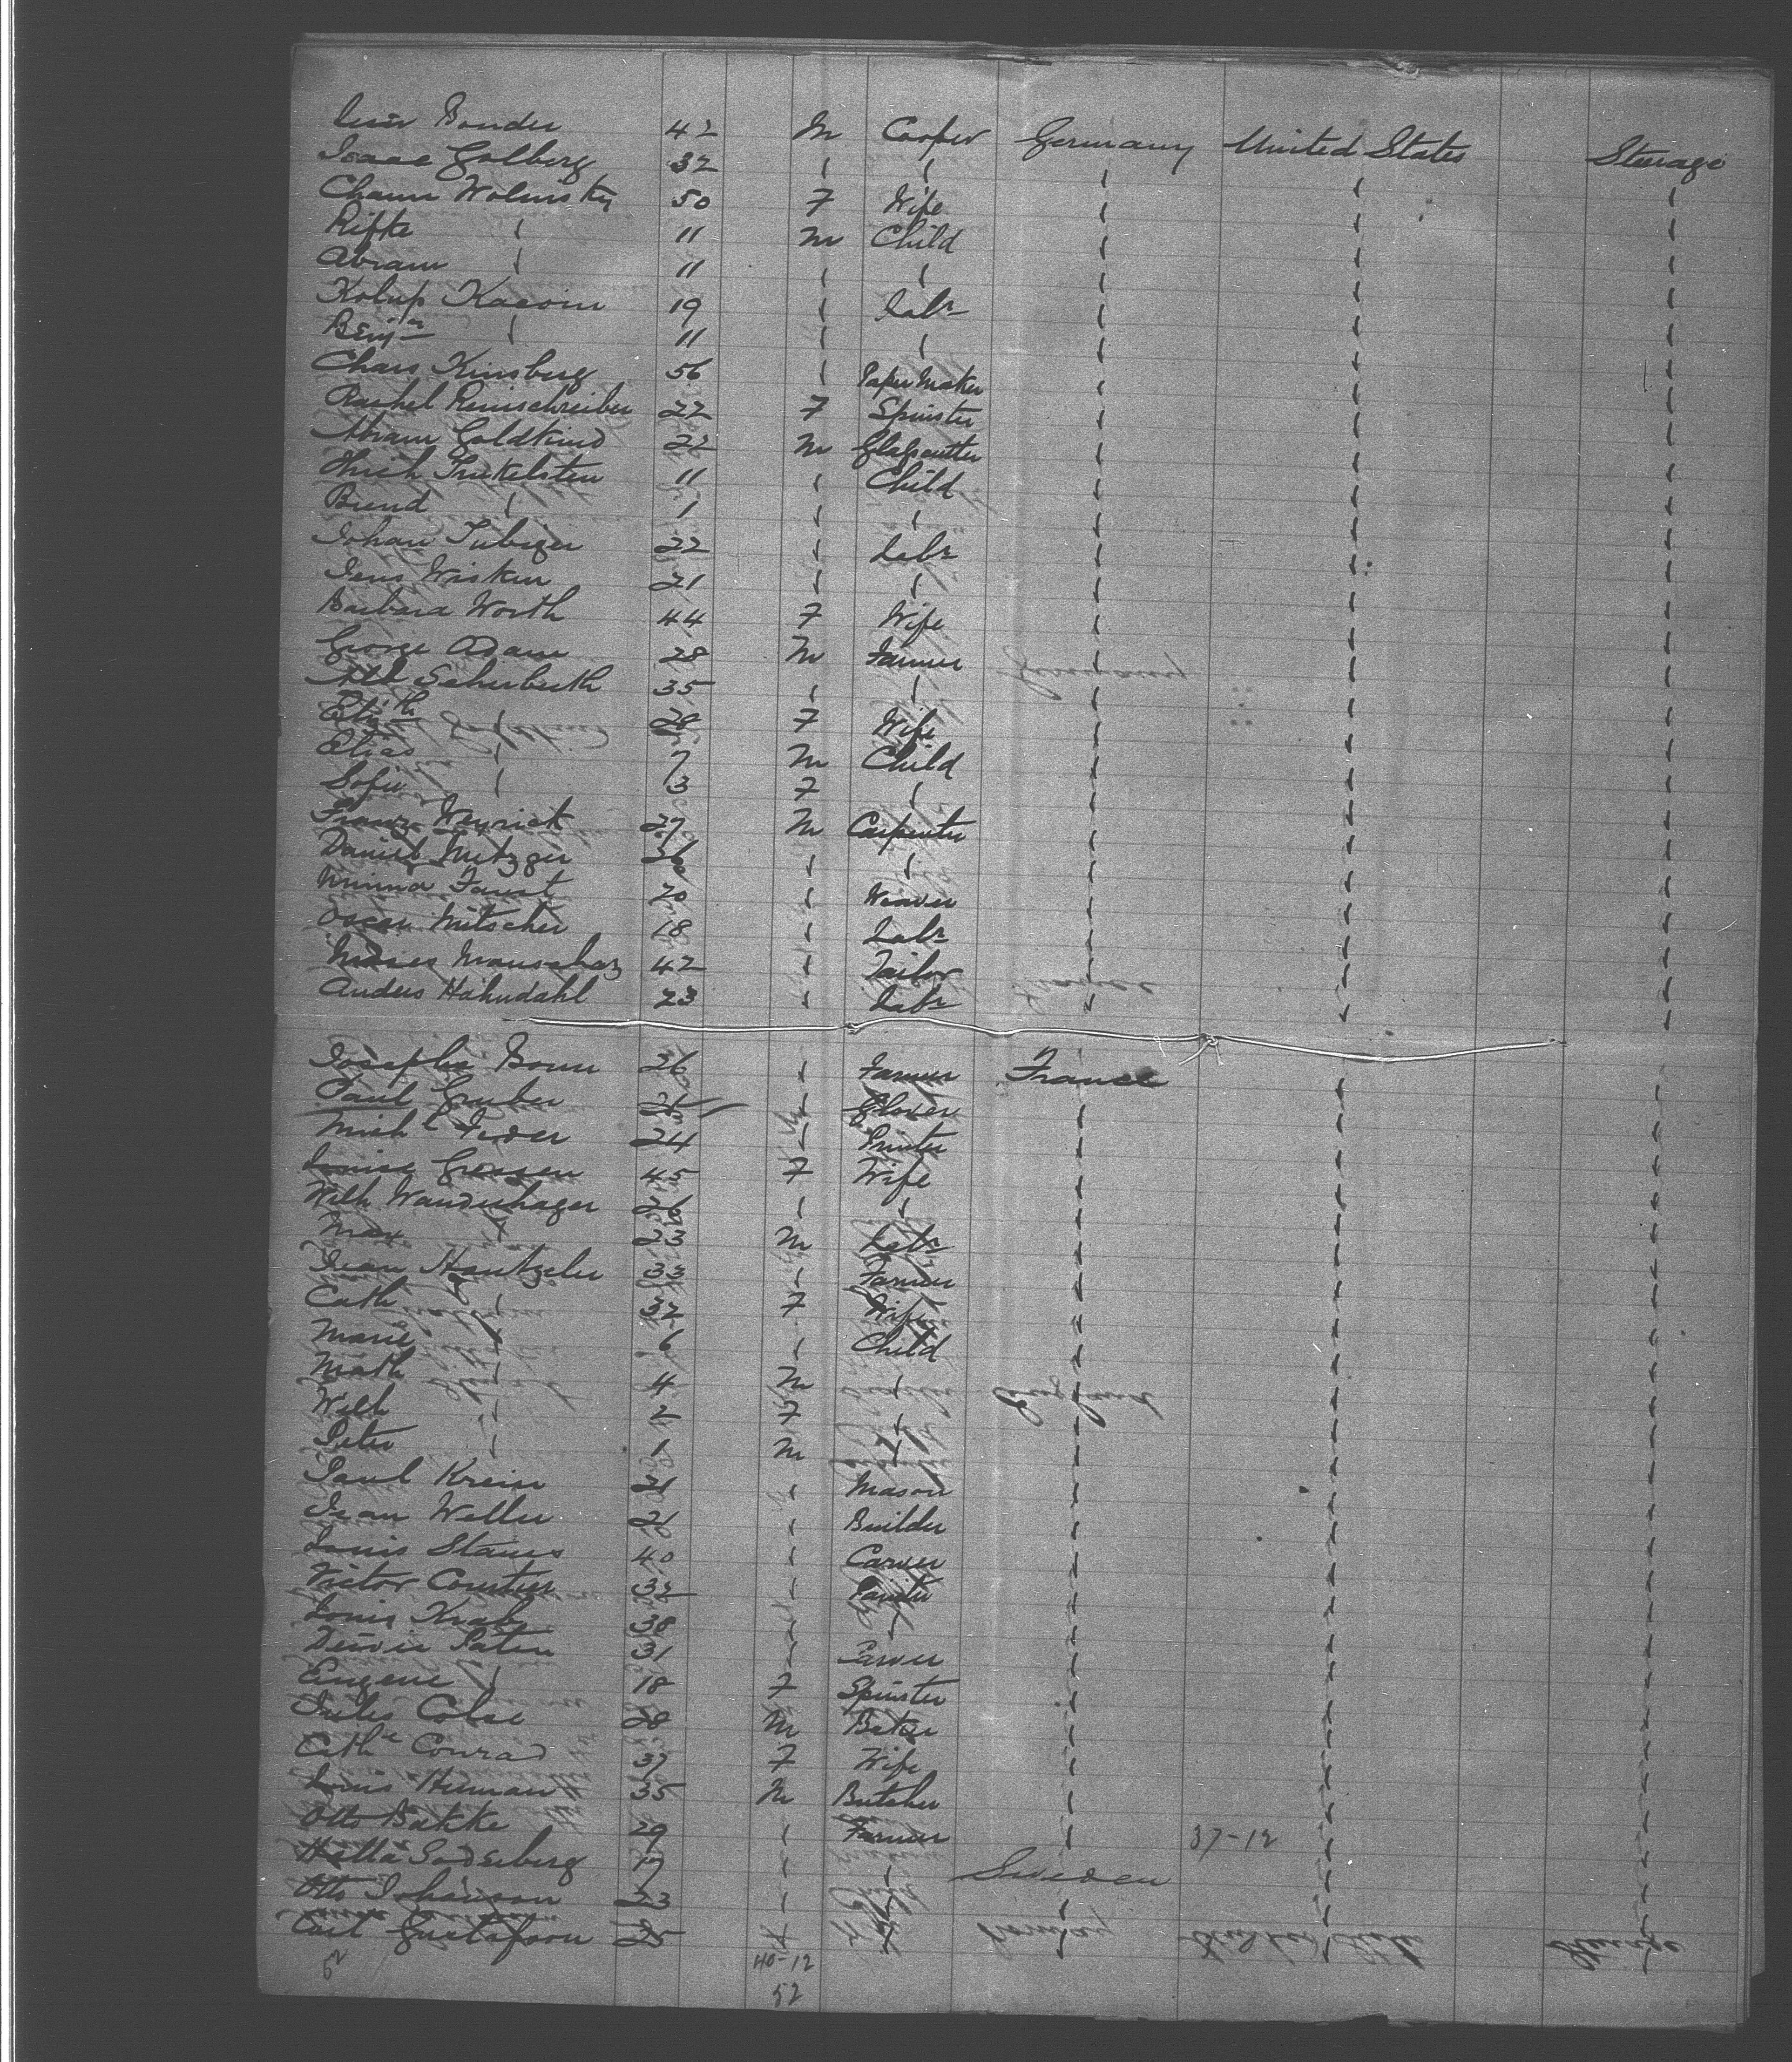 Bonder 42 M Cooper Germany United States Steerage
Isaac Golberg 32 " " " " "
Chaim Wolinsky 50 F Wife " " "
Rifke " 11 M Child " " "
Abram " 11 " " " " "
19 " Labr " " "
Benjn " 11 " " " " "
Chars Kinsberg 56 " Paper Maker " " "
Rachel Reinschreiber 22 F Spinster " " "
Abram Goldkind 22 M Glasscutter " " "
11 " Child " " "
" 1 " " " " "
Johan 22 " Labr " " "
Jens 21 " " " " "
Barbara Worth 44 F Wife " " "
George Adam 28 M Farmer " " "
35 " " " " "
Elizth " 28 F Wife " " "
Elias " 7 M Child " " "
Sofie " 3 F " " " "
Franz Weyrick 27 M Carpenter " " "
Daniel Metzger 26 " " " " "
Minna Faust 20 " Weaver " " "
Oscar Mitscher 18 " Labr " " "
Moses 42 " Tailor " " "
Anders Hahndahl 23 " Labr " " "
Josephe Bonn 26 " Farmer France " "
Paul Gruber 25 " Glover " " "
Michl 24 " Printer " " "
Louise 45 F Wife " " "
Wilh Wandenhager 26 " " " " "
Max " 23 M Labr " " "
Jean Hantzeler 33 " Farmer " " "
Cath " 32 F Wife " " "
Marie " 6 " Child " " "
Math " 4 M " " " "
Wilh " 2 F " " " "
Peter " 1 M " " " "
Paul Krein 21 " Mason " " "
Jean Weller 21 " Builder " " "
Louis 40 " Carver " " "
Victor 32 " Painter " " "
Louis Krab 38 " " " " "
31 " Carver " " "
Eugene " 18 F Spinster " " "
Jules Colae 28 M Baker " " "
Cathe Conrad 37 F Wife " " "
Louis Herman 35 M Butcher " " "
Otto Batkke 29 " Farmer " 37-12 " "
Soderberg 19 " " Sweden " "
Otto Johanson 23 " " " " "
Carl Gustafson 25 " " " " "
52 40-12
52